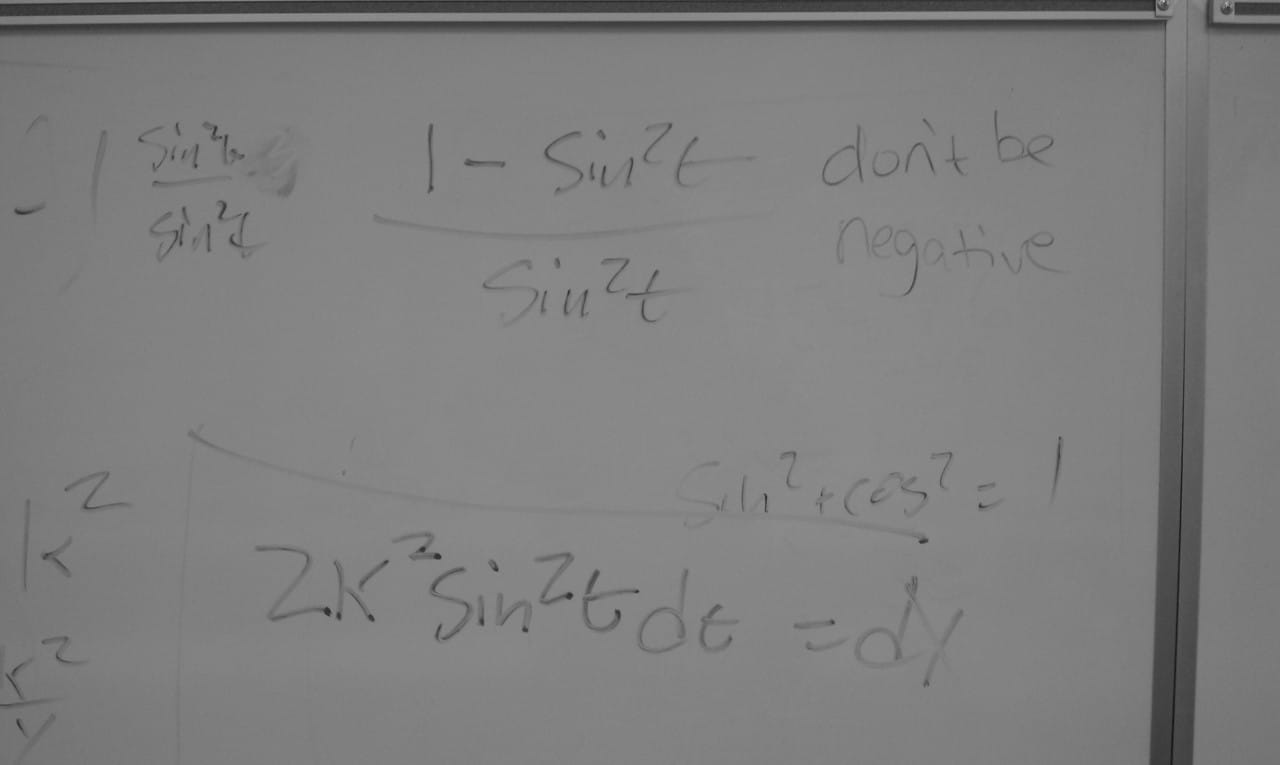 - 1 sin²t / sin²t
1 - Sin²t / Sin²t
don't be
negative
k²
sin² + cos² = 1
2k² sin²t dt = dy
k² / y